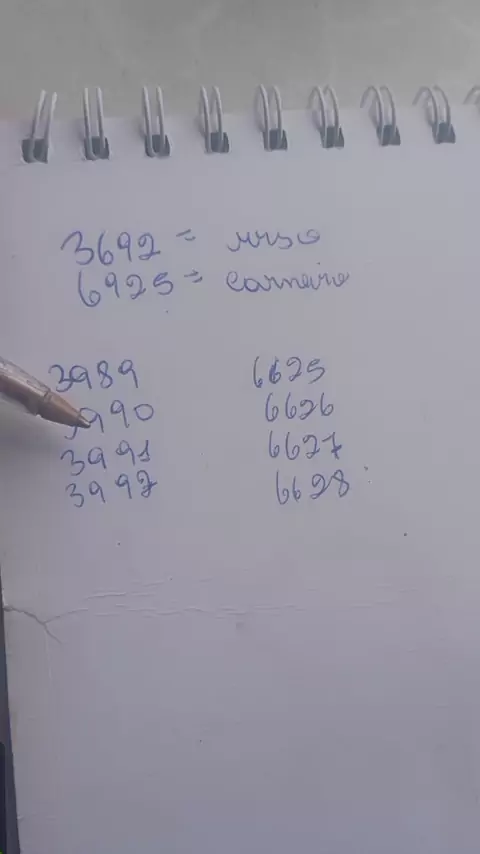 3692 = urso
6925 = Carneiro
3989 6625
990 6626
3991 6627
3992 6628